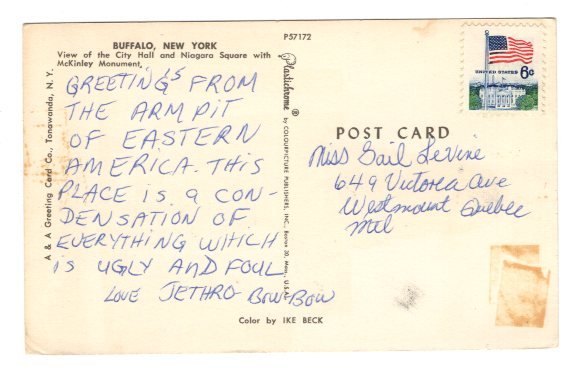 P57172
BUFFALO, NEW YORK
View of the City Hall and Niagara Square with
McKinley Monument.
GREETING'S FROM
THE ARM PIT
OF EASTERN
AMERICA. THIS
PLACE IS A CON-
DENSATION OF
EVERYTHING WHICH
IS UGLY AND FOUL
LOVE JETHRO BOW-BOW
A & A Greeting Card Co., Tonawanda, N. Y.
Plastichrome ® by COLOURPICTURE PUBLISHERS, INC., Boston 30, Mass., U.S.A.
Color by IKE BECK
UNITED STATES 6c
POST CARD
Miss Gail LeVine
649 Victoria Ave
Westmount Quebec
Mtl